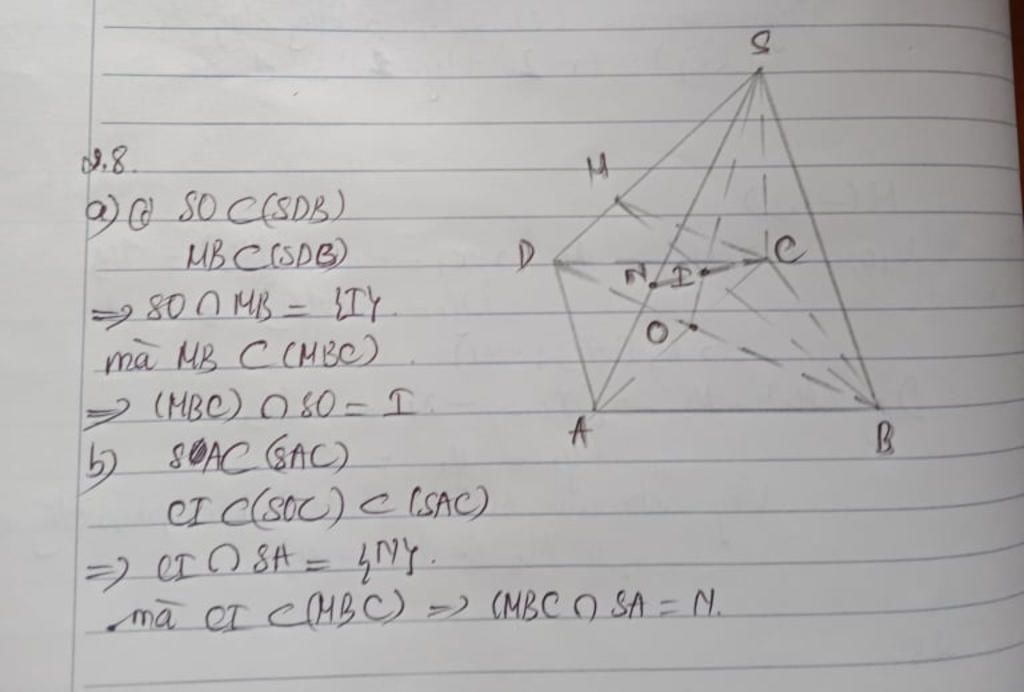 9.8.
a) SO ⊂ (SDB)
MB ⊂ (SDB)
=> SO ∩ MB = {I}.
mà MB ⊂ (MBC)
=> (MBC) ∩ SO = I.
b) SA ⊂ (SAC)
CI ⊂ (SOC) ⊂ (SAC)
=> CI ∩ SA = {N}.
mà CI ⊂ (MBC) => (MBC ∩ SA = N.
S
M
D
N
I
C
O
A
B